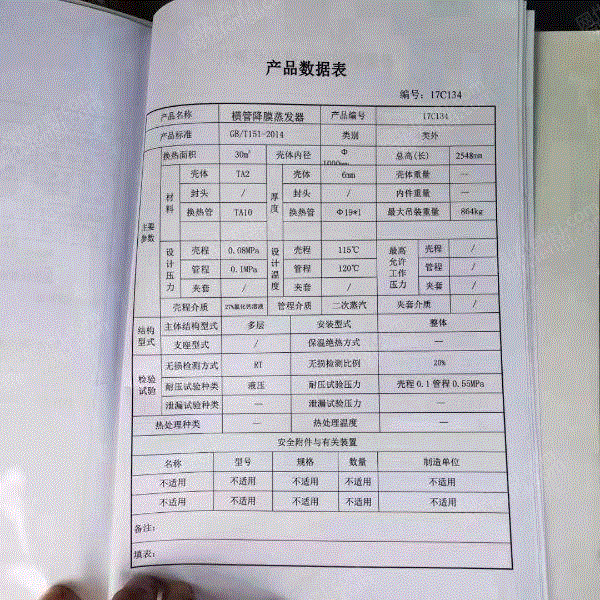 产品数据表
编号：17C134
产品名称 横管降膜蒸发器 产品编号 17C134
产品标准 GB/T151-2014 类别 类外
主要参数
换热面积 30m² 壳体内径 Φ 1000mm 总高(长) 2548mm
材料 壳体 TA2 厚度 壳体 6mm 壳体重量 —
封头 / 封头 / 内件重量 —
换热管 TA10 换热管 Φ19*1 最大吊装重量 864kg
设计压力 壳程 0.08MPa 设计温度 壳程 115℃ 最高允许工作压力 壳程 /
管程 0.1MPa 管程 120℃ 管程 /
夹套 / 夹套 / 夹套 /
壳程介质 27%氯化钙溶液 管程介质 二次蒸汽 夹套介质 /
结构型式 主体结构型式 多层 安装型式 整体
支座型式 / 保温绝热方式 —
检验试验 无损检测方式 RT 无损检测比例 20%
耐压试验种类 液压 耐压试验压力 壳程 0.1 管程 0.55MPa
泄漏试验种类 — 泄漏试验压力 —
热处理种类 — 热处理温度 —
安全附件与有关装置
名称 型号 规格 数量 制造单位
不适用 不适用 不适用 不适用 不适用
不适用 不适用 不适用 不适用 不适用
备注：
填表：